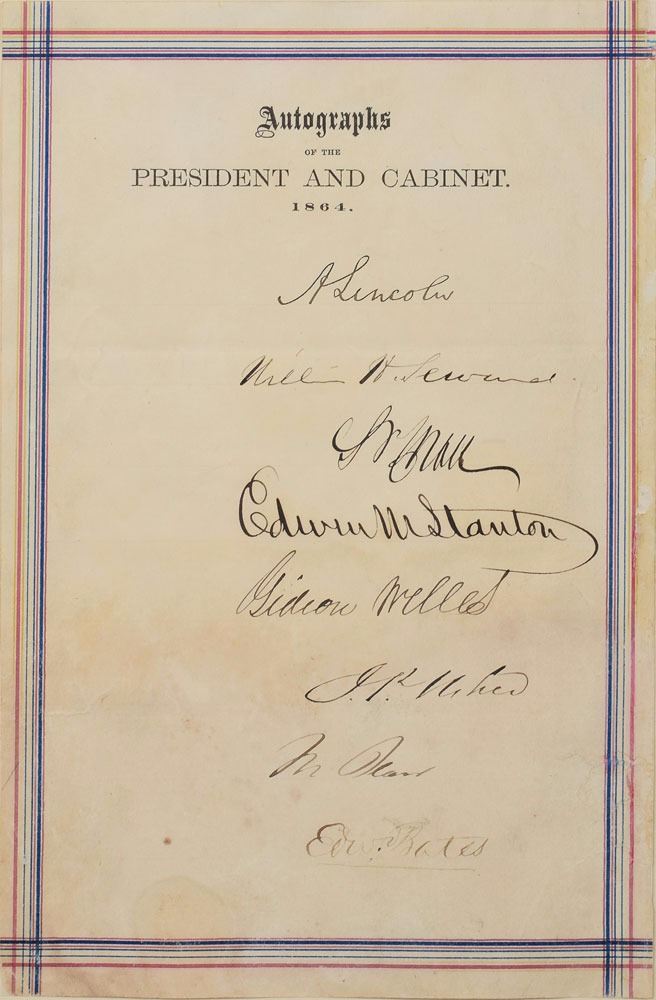 Autographs
OF THE
PRESIDENT AND CABINET.
1864.
A Lincoln
William H. Seward.
Edwin M Stanton
Gideon Welles
J. P. Usher
M Blair
Edw. Bates